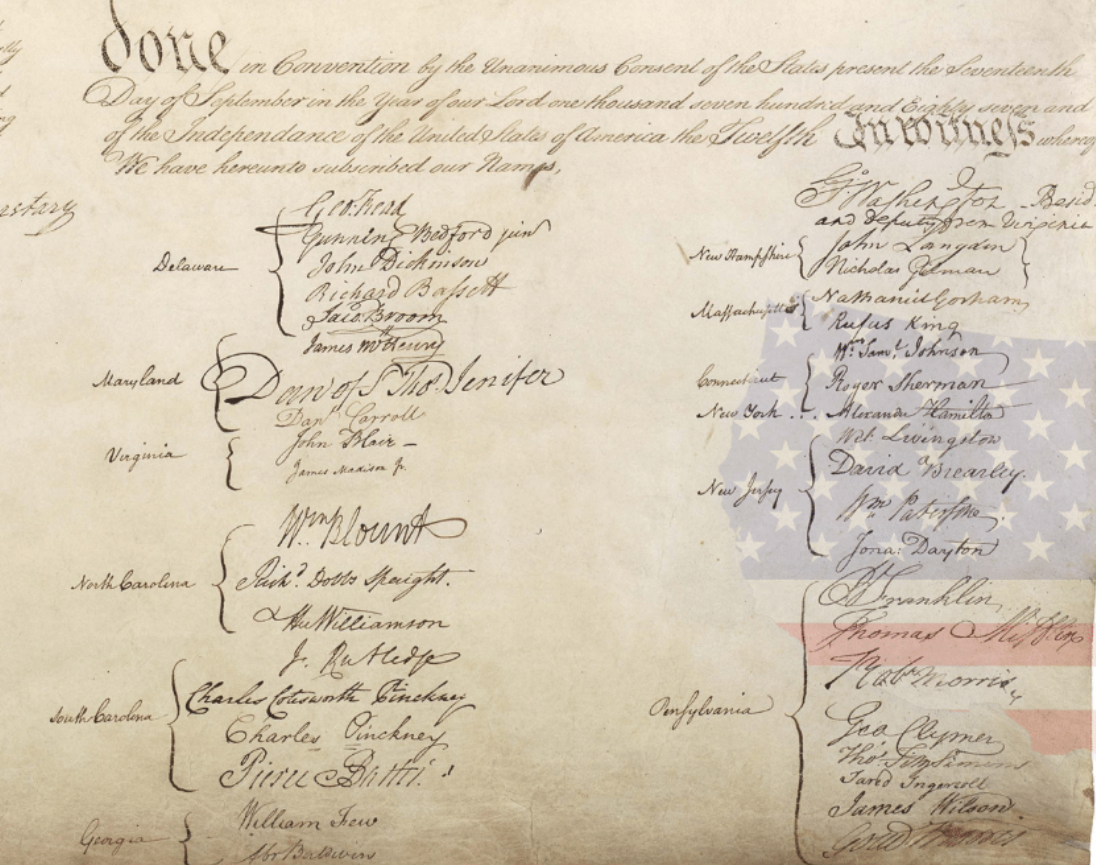 done in Convention by the Unanimous Consent of the States present the Seventeenth
Day of September in the Year of our Lord one thousand seven hundred and Eighty seven and
of the Independance of the United States of America the Twelfth In witness whereof
We have hereunto subscribed our Names,
Delaware
Geo: Read
Gunning Bedford jun
John Dickinson
Richard Bassett
Jaco: Broom
Maryland
James McHenry
Dan of St Thos. Jenifer
Danl Carroll
Virginia
John Blair –
James Madison Jr.
North Carolina
Wm. Blount
Richd. Dobbs Spaight.
Hu Williamson
South Carolina
J. Rutledge
Charles Cotesworth Pinckney
Charles Pinckney
Pierce Butler.
Georgia
William Few
Abr Baldwin
Go. Washington – Presid
and deputy from Virginia
New Hampshire
John Langdon
Nicholas Gilman
Massachusetts
Nathaniel Gorham
Rufus King
Connecticut
Wm. Saml. Johnson
Roger Sherman
New York . . . Alexander Hamilton
New Jersey
Wil: Livingston
David Brearley.
Wm. Paterson.
Jona: Dayton
Pensylvania
B Franklin
Thomas Mifflin
Robt Morris
Geo. Clymer
Thos. FitzSimons
Jared Ingersoll
James Wilson.
Gouv Morris